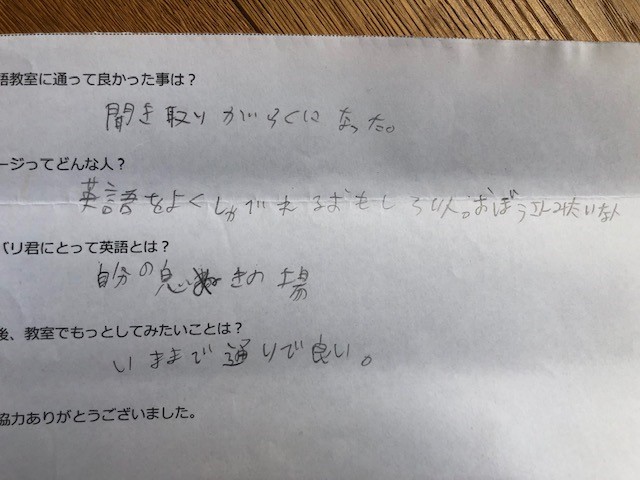 語教室に通って良かった事は？
聞き取りがらくになった。
ージってどんな人？
英語をよくしゃべれるおもしろい人。おぼうさんみたいな人
バリ君にとって英語とは？
自分の息ぬきの場
後、教室でもっとしてみたいことは？
いままで通りで良い。
協力ありがとうございました。